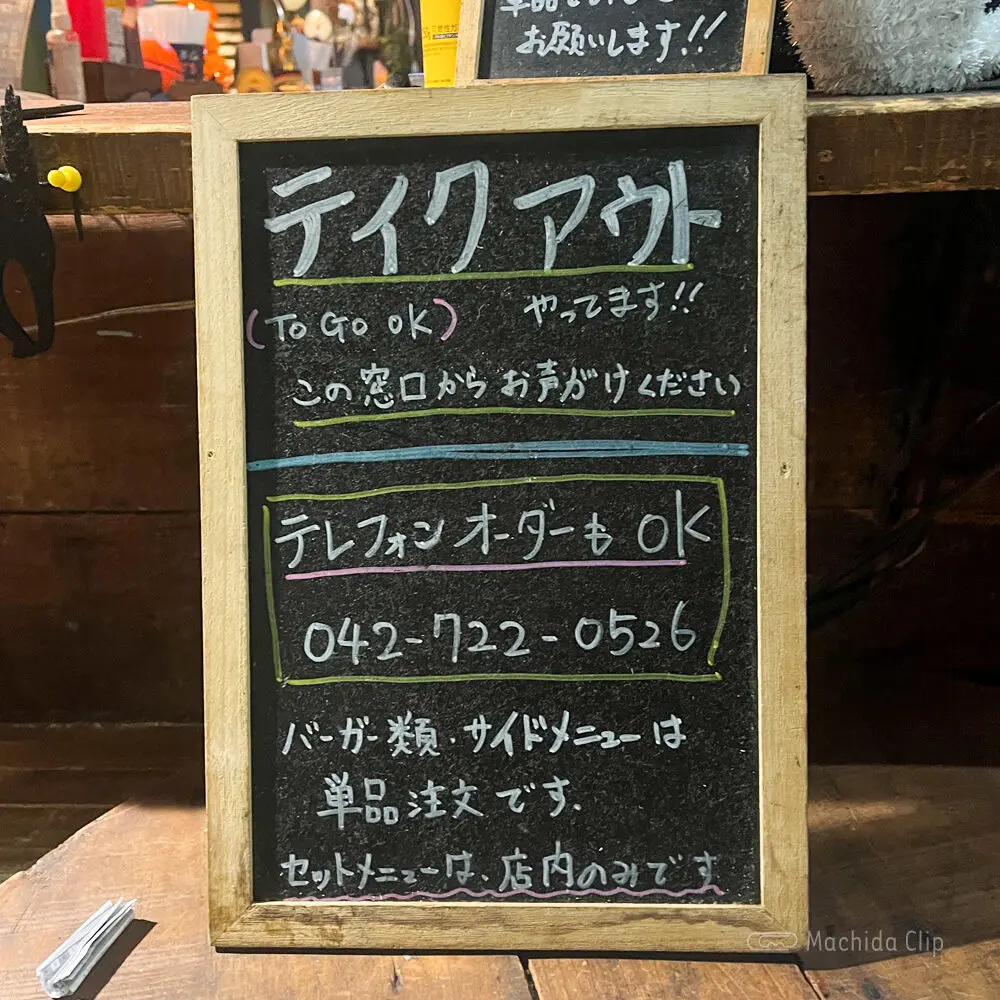 お願いします!!
テイクアウト
(To Go OK) やってます!!
この窓口からお声がけください
テレフォンオーダーも OK
042-722-0526
バーガー類・サイドメニューは
単品注文です.
セットメニューは、店内のみです
Machida Clip